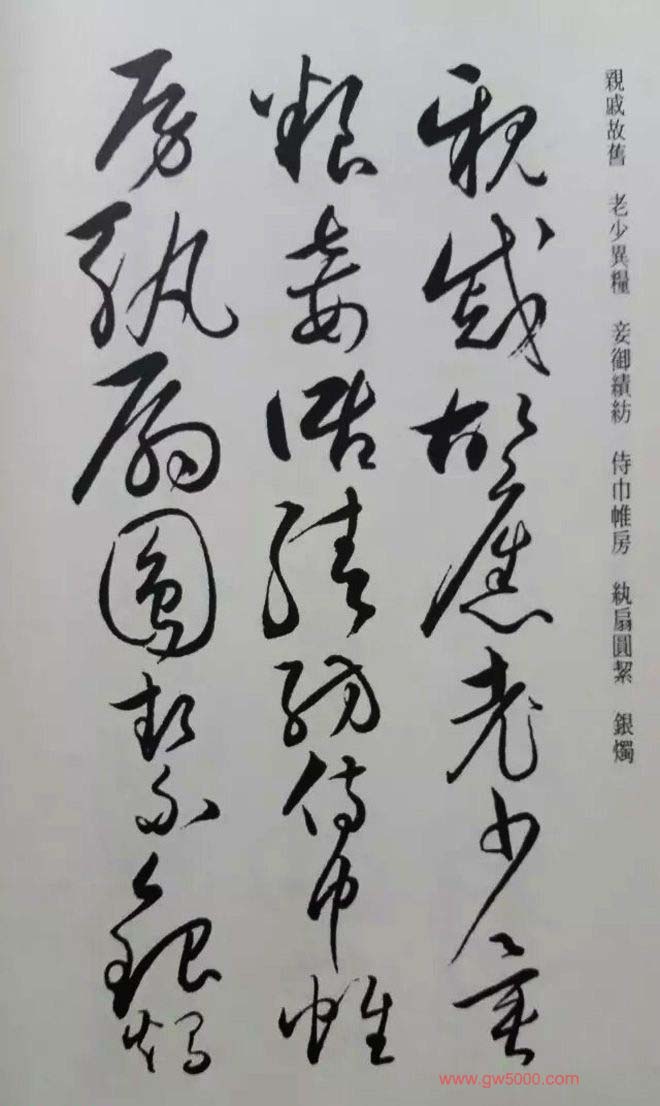 親戚故舊 老少異糧 妾御績紡 侍巾帷房 紈扇圓絜 銀燭
親戚故舊老少異
糧妾御績紡侍巾帷
房紈扇圓絜銀燭
www.gw5000.com